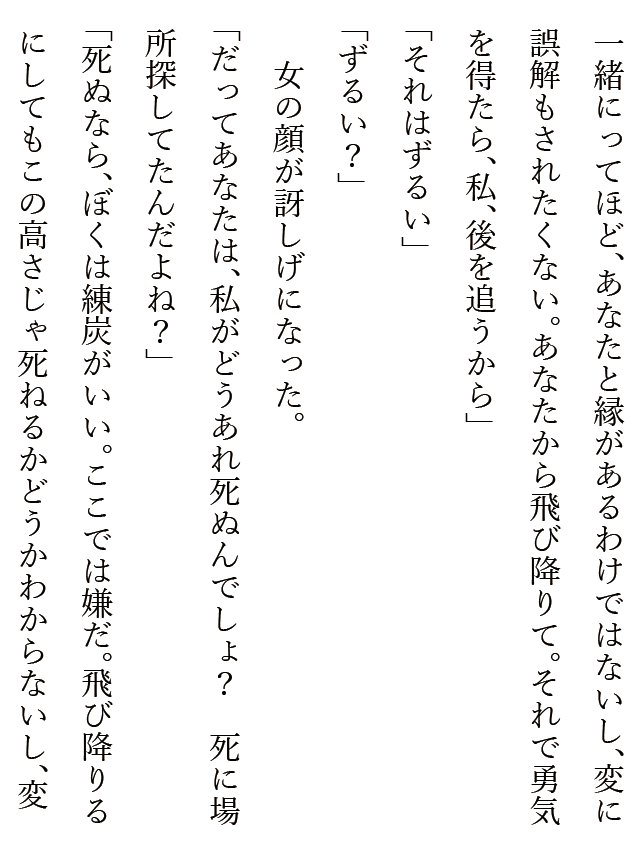 一緒にってほど、あなたと縁があるわけではないし、変に
誤解もされたくない。あなたから飛び降りて。それで勇気
を得たら、私、後を追うから」
「それはずるい」
「ずるい？」
　女の顔が訝しげになった。
「だってあなたは、私がどうあれ死ぬんでしょ？　死に場
所探してたんだよね？」
「死ぬなら、ぼくは練炭がいい。ここでは嫌だ。飛び降りる
にしてもこの高さじゃ死ねるかどうかわからないし、変